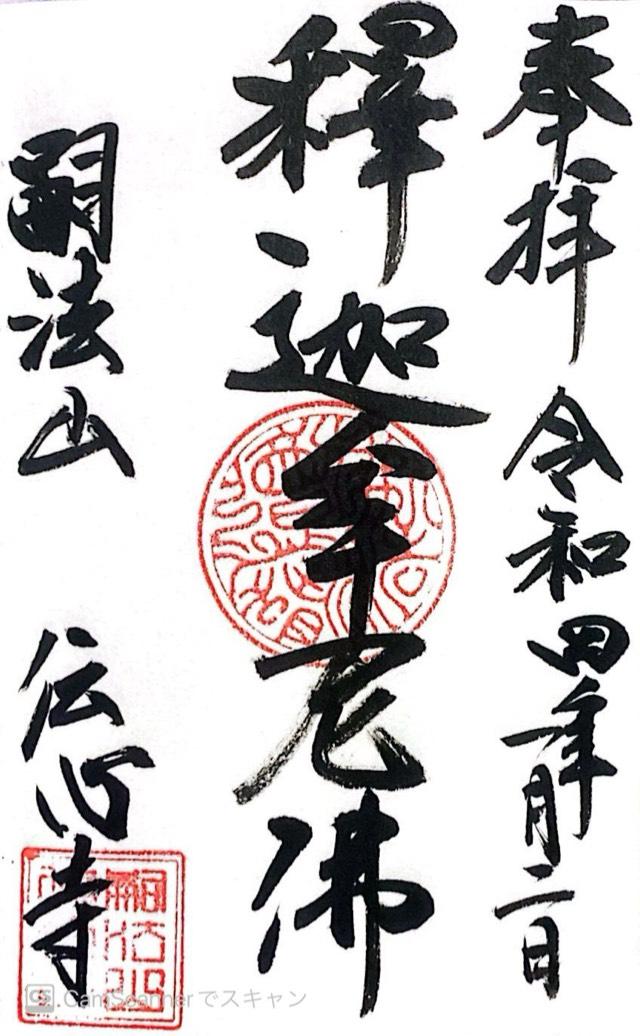 奉拝 令和四年一月二日
釋迦牟尼佛
嗣法山 伝心寺
嗣法山
CS CamScannerでスキャン